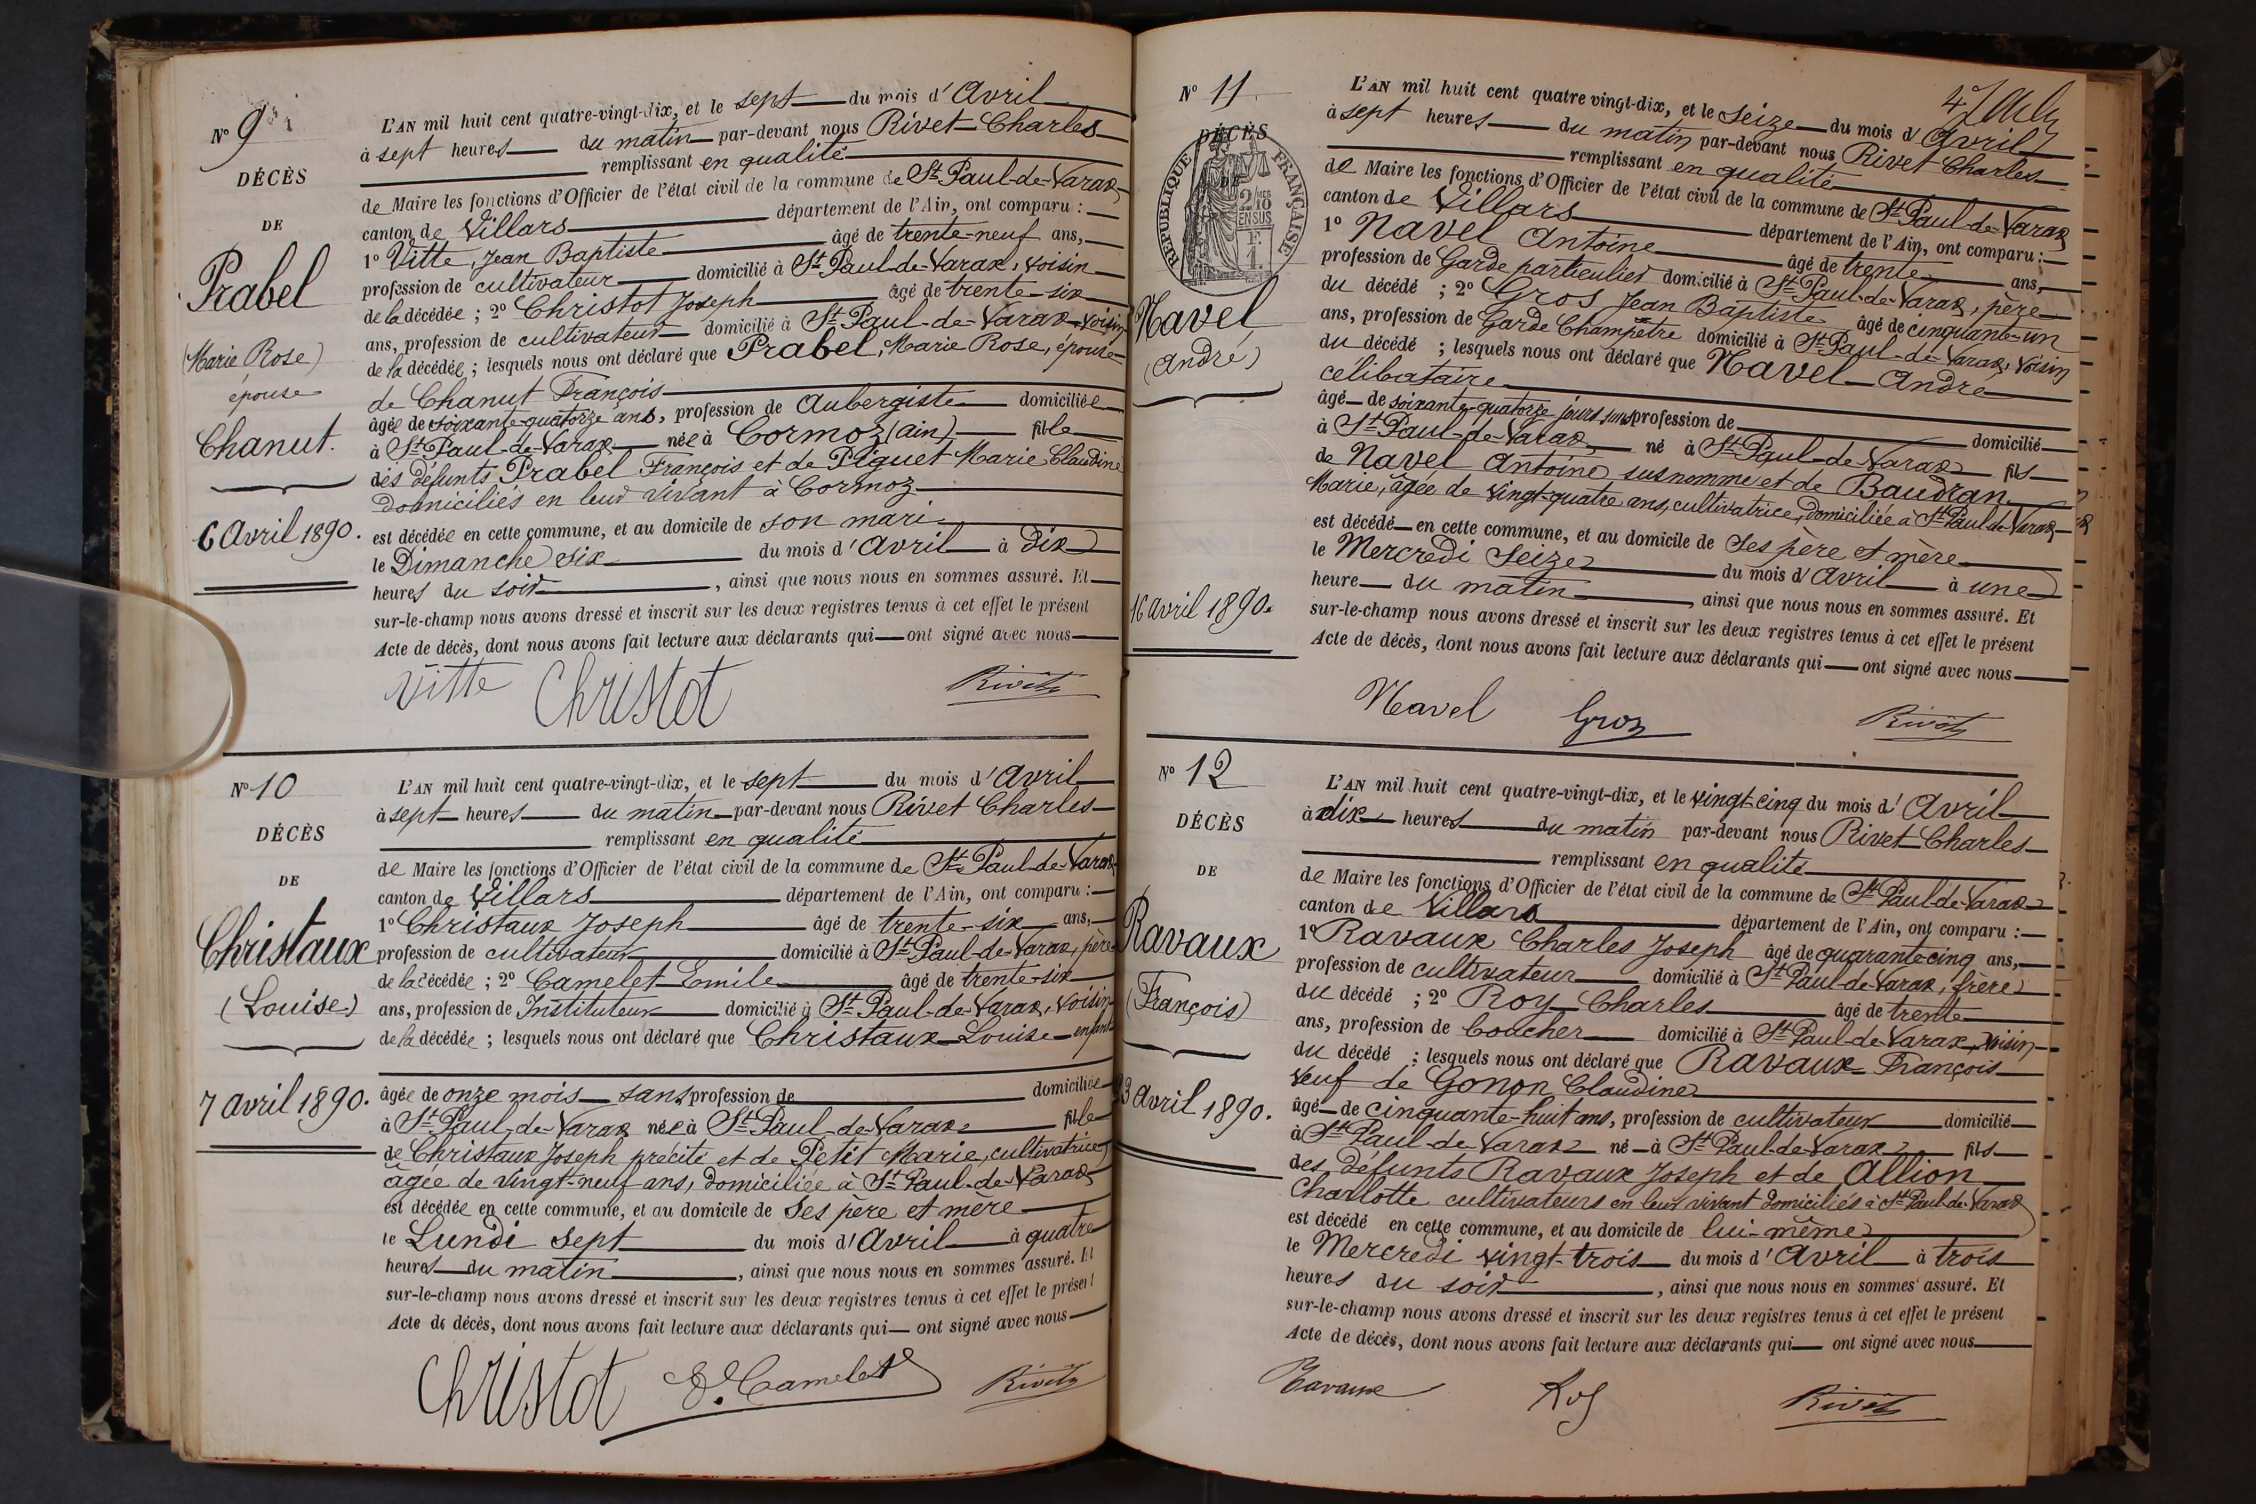 N° 9
DÉCÈS
DE
Prabel
(Marie Rose)
épouse
Chanut.
6 Avril 1890.
L'AN mil huit cent quatre-vingt-dix, et le sept du mois d'Avril
à sept heures du matin par-devant nous Rivet Charles
remplissant en qualité
de Maire les fonctions d'Officier de l'état civil de la commune de St Paul-de-Varax
canton de Villars département de l'Ain, ont comparu :
1° Vitte, Jean Baptiste âgé de trente-neuf ans,
profession de cultivateur domicilié à St Paul-de-Varax, voisin
de la décédée ; 2° Christot Joseph âgé de trente-six
ans, profession de cultivateur domicilié à St Paul-de-Varax voisin
de la décédée ; lesquels nous ont déclaré que Prabel, Marie Rose, épouse
de Chanut François
âgée de soixante-quatorze ans, profession de Aubergiste domiciliée
à St Paul-de-Varax née à Cormoz (Ain) fille
des défunts Prabel François et de Piguet Marie Claudine
domiciliés en leur vivant à Cormoz
est décédée en cette commune, et au domicile de son mari
le Dimanche six du mois d'Avril à dix
heures du soir, ainsi que nous nous en sommes assuré. Et
sur-le-champ nous avons dressé et inscrit sur les deux registres tenus à cet effet le présent
Acte de décès, dont nous avons fait lecture aux déclarants qui ont signé avec nous
Vitte Christot Rivet
N° 10
DÉCÈS
DE
Christaux
(Louise)
7 Avril 1890.
L'AN mil huit cent quatre-vingt-dix, et le sept du mois d'Avril
à sept heures du matin par-devant nous Rivet Charles
remplissant en qualité
de Maire les fonctions d'Officier de l'état civil de la commune de St Paul-de-Varax
canton de Villars département de l'Ain, ont comparu :
1° Christaux Joseph âgé de trente-six ans,
profession de cultivateur domicilié à St Paul-de-Varax, père
de la décédée ; 2° Camelet Emile âgé de trente-six
ans, profession de Instituteur domicilié à St Paul-de-Varax, voisin
de la décédée ; lesquels nous ont déclaré que Christaux Louise enfant
âgée de onze mois sans profession de domiciliée
à St Paul-de-Varax née à St Paul-de-Varax fille
de Christaux Joseph précité et de Petit Marie, cultivatrice
âgée de vingt-neuf ans, domiciliée à St Paul-de-Varax
est décédée en cette commune, et au domicile de ses père et mère
le Lundi sept du mois d'Avril à quatre
heures du matin, ainsi que nous nous en sommes assuré. Et
sur-le-champ nous avons dressé et inscrit sur les deux registres tenus à cet effet le présent
Acte de décès, dont nous avons fait lecture aux déclarants qui ont signé avec nous
Christot E. Camelet Rivet
N° 11
DÉCÈS
DE
RÉPUBLIQUE FRANÇAISE
2/10 EN SUS
Navel
(André)
16 avril 1890.
L'AN mil huit cent quatre vingt-dix, et le seize du mois d'Avril
à sept heures du matin par-devant nous Rivet Charles
remplissant en qualité
de Maire les fonctions d'Officier de l'état civil de la commune de St Paul-de-Varax
canton de Villars département de l'Ain, ont comparu :
1° Navel Antoine âgé de trente ans,
profession de Garde particulier domicilié à St Paul-de-Varax, père
du décédé ; 2° Gros Jean Baptiste âgé de cinquante-un
ans, profession de Garde Champêtre domicilié à St Paul-de-Varax, voisin
du décédé ; lesquels nous ont déclaré que Navel André
célibataire
âgé de soixante-quatorze jours sans profession de domicilié
à St Paul-de-Varax né à St Paul-de-Varax fils
de Navel Antoine susnommé et de Baudran
Marie, âgée de vingt-quatre ans, cultivatrice, domiciliée à St Paul-de-Varax
est décédé en cette commune, et au domicile de ses père et mère
le Mercredi seize du mois d'Avril à une
heure du matin, ainsi que nous nous en sommes assuré. Et
sur-le-champ nous avons dressé et inscrit sur les deux registres tenus à cet effet le présent
Acte de décès, dont nous avons fait lecture aux déclarants qui ont signé avec nous
Navel Gros Rivet
N° 12
DÉCÈS
DE
Ravaux
(François)
23 Avril 1890.
L'AN mil huit cent quatre-vingt-dix, et le vingt-cinq du mois d'Avril
à dix heures du matin par-devant nous Rivet Charles
remplissant en qualité
de Maire les fonctions d'Officier de l'état civil de la commune de St Paul-de-Varax
canton de Villars département de l'Ain, ont comparu :
1° Ravaux Charles Joseph âgé de quarante-cinq ans,
profession de cultivateur domicilié à St Paul-de-Varax, frère
du décédé ; 2° Roy Charles âgé de trente
ans, profession de boucher domicilié à St Paul-de-Varax, voisin
du décédé ; lesquels nous ont déclaré que Ravaux François
veuf de Gonon Claudine
âgé de cinquante-huit ans, profession de cultivateur domicilié
à St Paul-de-Varax né à St Paul-de-Varax fils
des défunts Ravaux Joseph et de Allion
Charlotte cultivateurs en leur vivant domiciliés à St Paul-de-Varax
est décédé en cette commune, et au domicile de lui-même
le Mercredi vingt-trois du mois d'Avril à trois
heures du soir, ainsi que nous nous en sommes assuré. Et
sur-le-champ nous avons dressé et inscrit sur les deux registres tenus à cet effet le présent
Acte de décès, dont nous avons fait lecture aux déclarants qui ont signé avec nous
Ravaux Roy Rivet